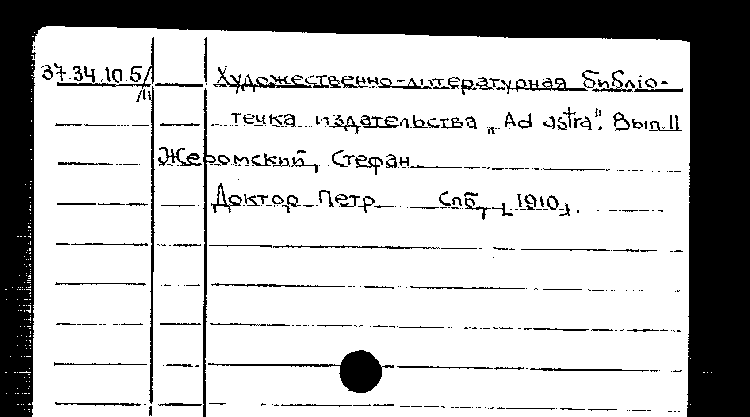 37.34.10.5/11
Художественно-литературная библіо-
течка издательства „Ad astra". Вып. II
Жеромский, Стефан
Доктор Петр Спб, [1910].